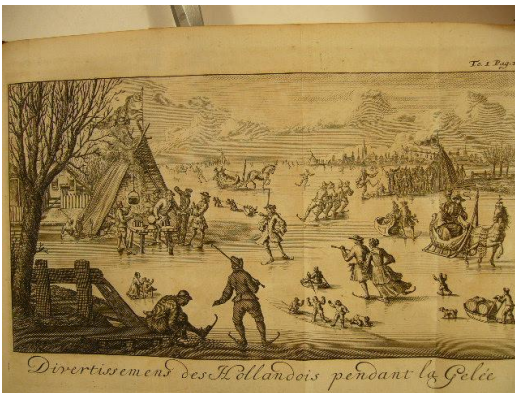 To. I Pag.
Divertissemens des Hollandois pendant la Gelée